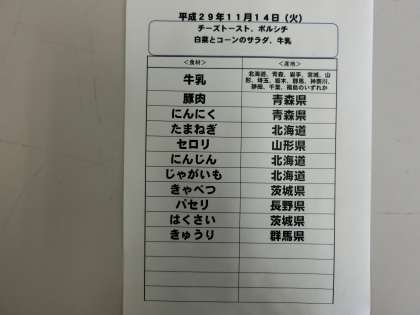 平成29年11月14日（火）
チーズトースト、ボルシチ
白菜とコーンのサラダ、牛乳
＜食材＞ ＜産地＞
牛乳 北海道、青森、岩手、宮城、山
形、埼玉、栃木、群馬、神奈川、
静岡、千葉、福島のいずれか
豚肉 青森県
にんにく 青森県
たまねぎ 北海道
セロリ 山形県
にんじん 北海道
じゃがいも 北海道
きゃべつ 茨城県
パセリ 長野県
はくさい 茨城県
きゅうり 群馬県